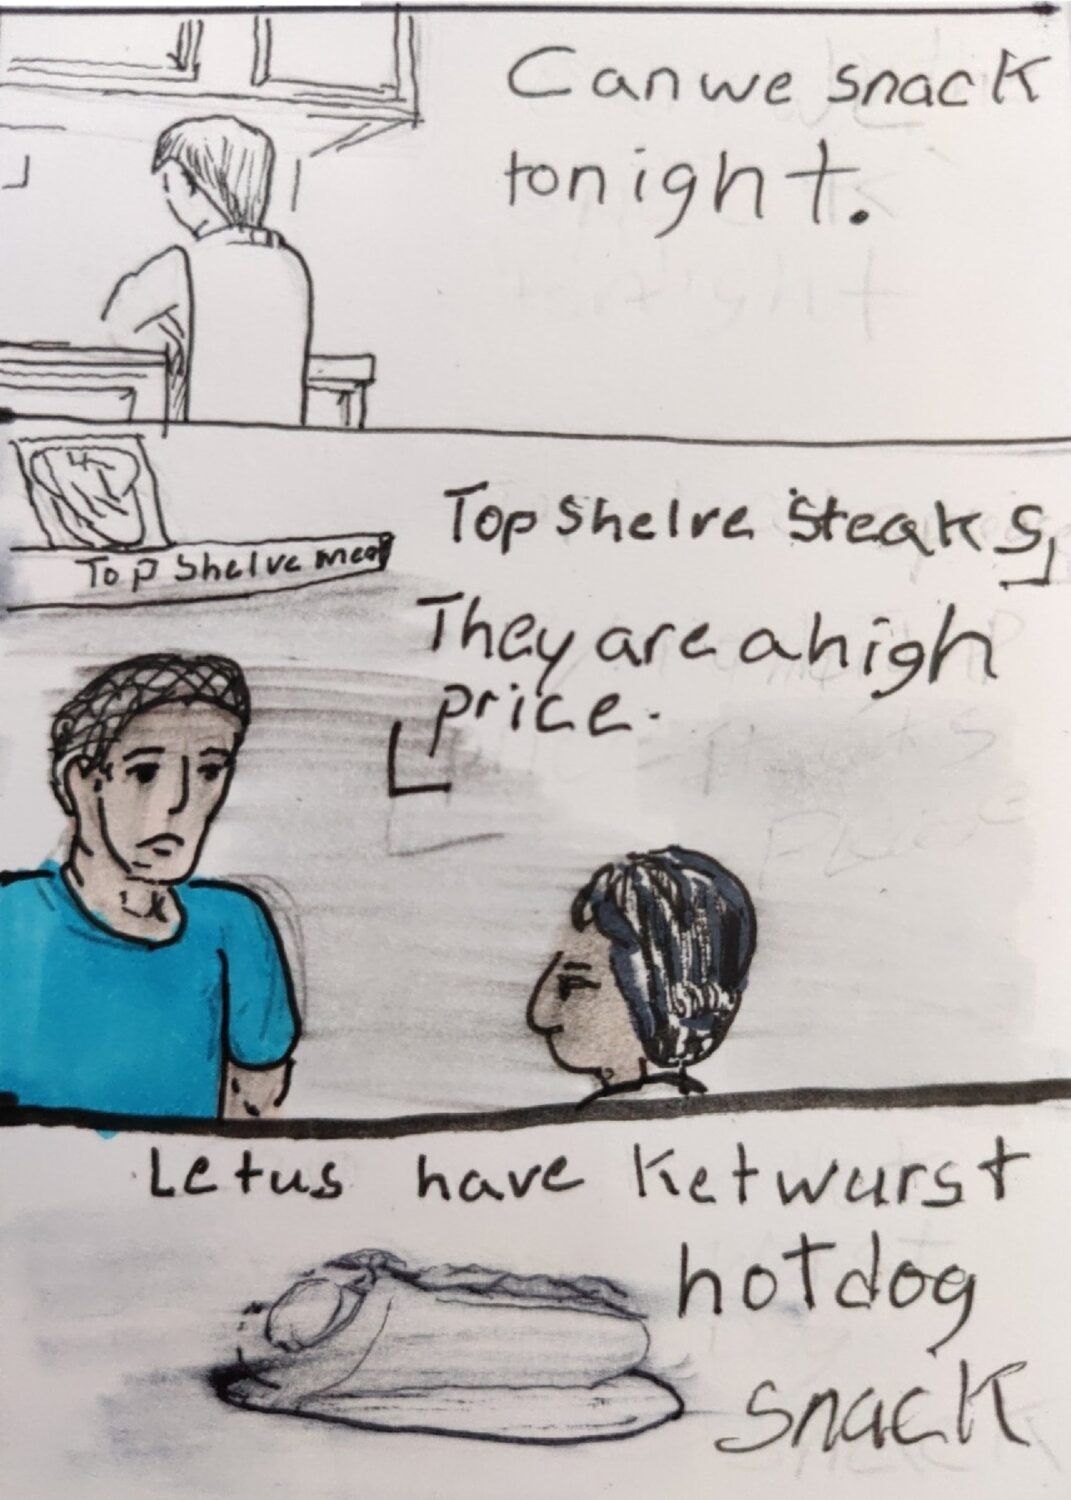 Can we snack
tonight.
Top Shelve Steaks,
Top Shelve meat
They are a high
price.
Let us have Ketwurst
hotdog
snack